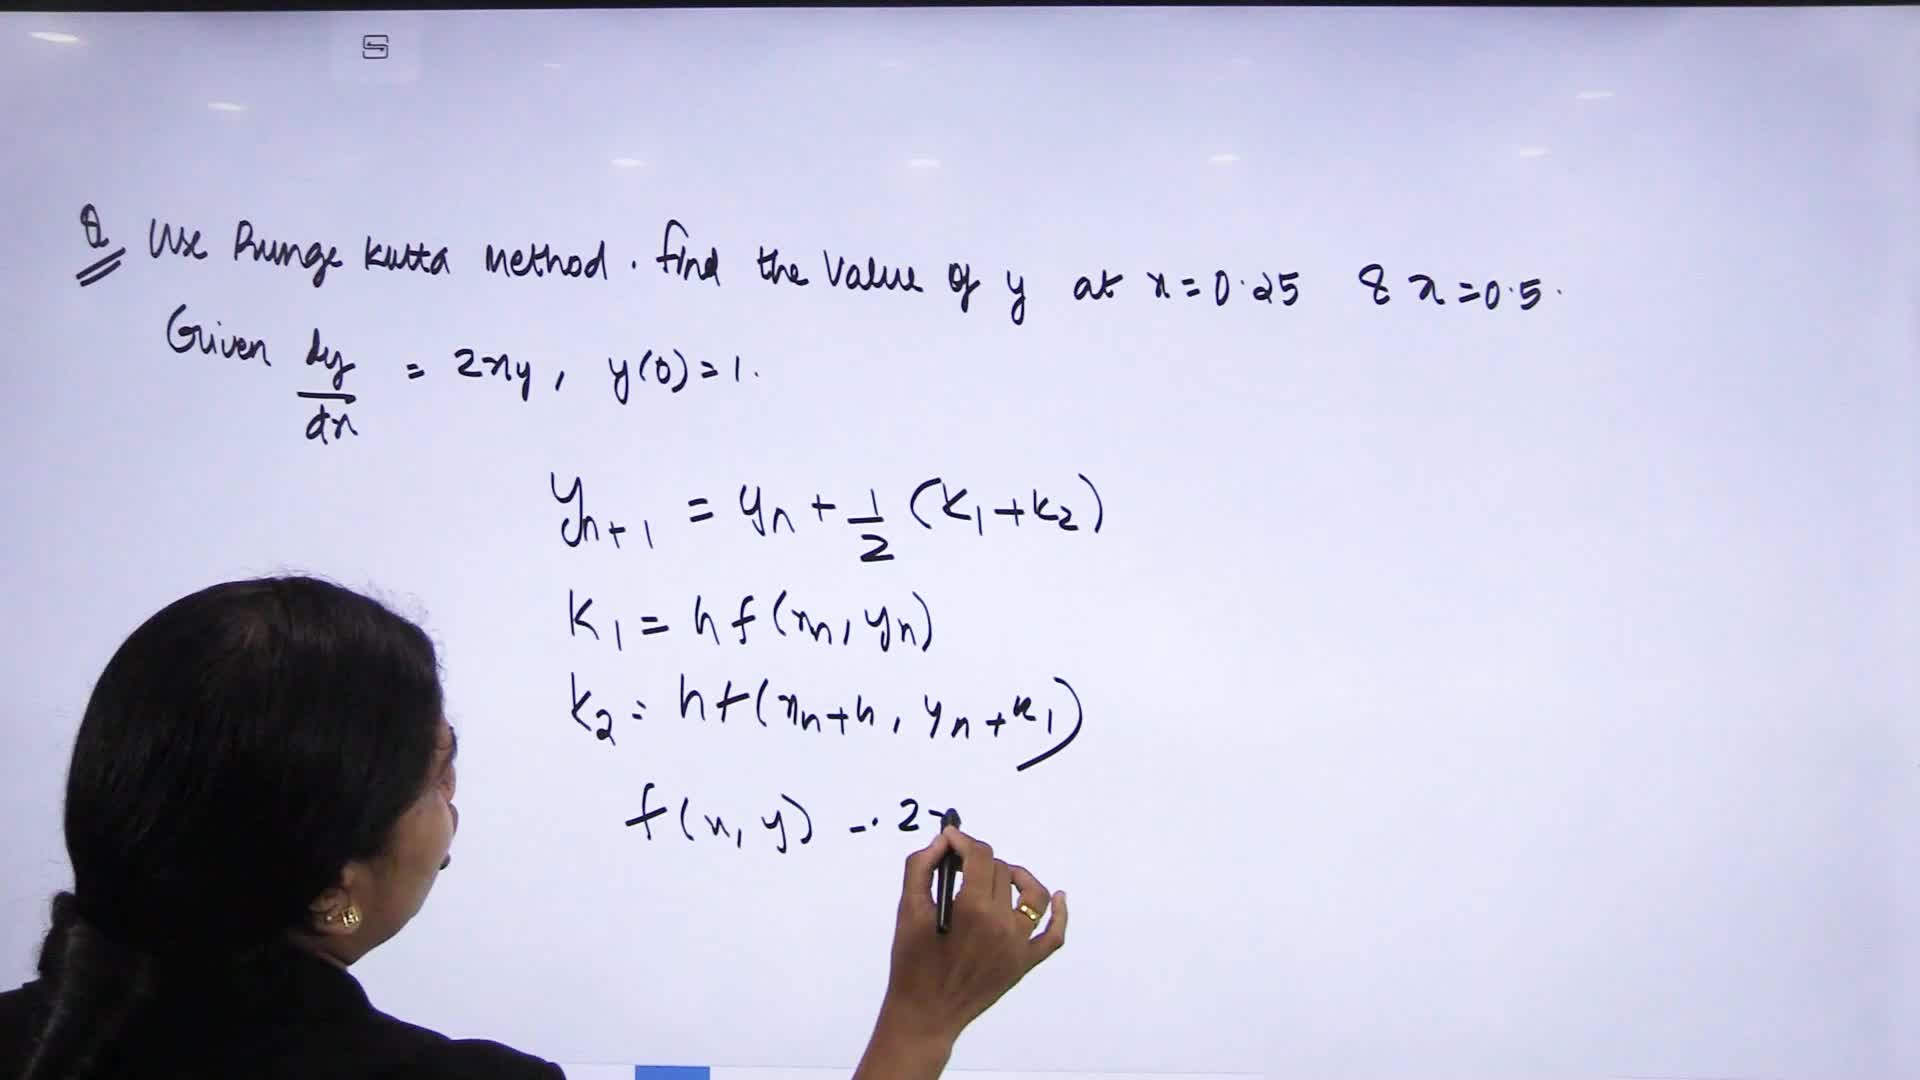 Q Use Runge Kutta Method. Find the value of y at x=0.25 & x=0.5.
Given dy/dx = 2xy, y(0)=1.
y_{n+1} = y_n + 1/2 (K_1+K_2)
K_1 = h f(x_n, y_n)
K_2 = h f(x_n+h, y_n+K_1)
f(x, y) = 2x